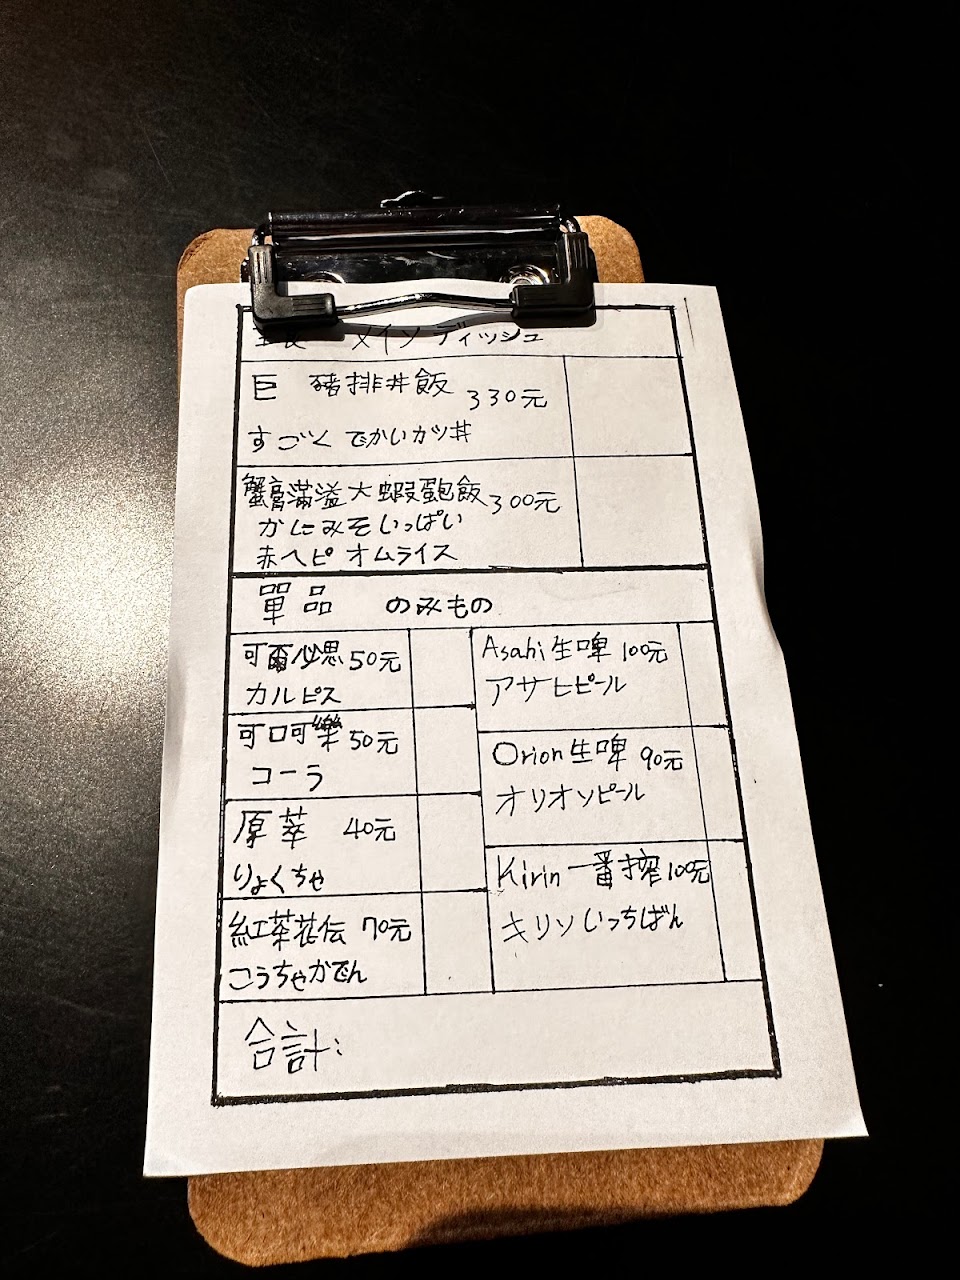 メインディッシュ
巨 豬排丼飯 330元
すごく でかいカツ丼
蟹膏滿溢大蝦蛋包飯 300元
かにみそいっぱい
赤ヘビ オムライス
單品 のみもの
可爾必思 50元
カルピス
可口可樂 50元
コーラ
原萃 40元
りょくちゃ
紅茶花伝 70元
こうちゃかでん
Asahi生啤 100元
アサヒビール
Orion生啤 90元
オリオンビール
Kirin一番搾 100元
キリンいっちばん
合計: